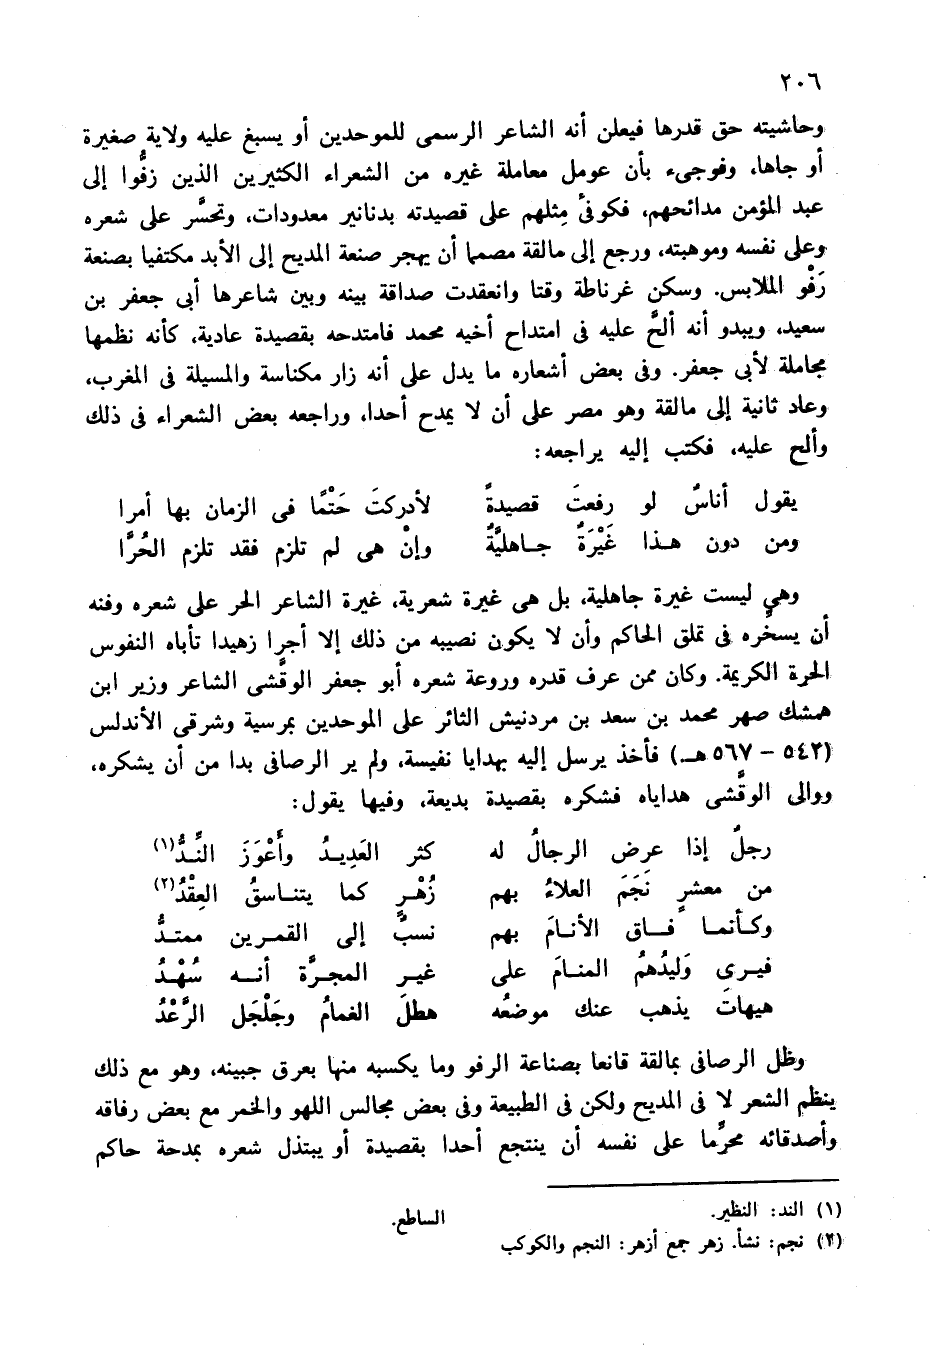 ٢٠٦
وحاشيته حق قدرها فيعلن أنه الشاعر الرسمى للموحدين أو يسبغ عليه ولاية صغيرة
أو جاها، وفوجىء بأن عومل معاملة غيره من الشعراء الكثيرين الذين زفُّوا إلى
عبد المؤمن مدائحهم، فكوفئ مِثلهم على قصيدته بدنانير معدودات، وتحسَّر على شعره
وعلى نفسه وموهبته، ورجع إلى مالقة مصمما أن يهجر صنعة المديح إلى الأبد مكتفيا بصنعة
رَفْو الملابس. وسكن غرناطة وقتا وانعقدت صداقة بينه وبين شاعرها أبى جعفر بن
سعيد، ويبدو أنه ألحَّ عليه فى امتداح أخيه محمد فامتدحه بقصيدة عادية، كأنه نظمها
مجاملة لأبى جعفر. وفى بعض أشعاره ما يدل على أنه زار مكناسة والمسيلة فى المغرب،
وعاد ثانية إلى مالقة وهو مصر على أن لا يمدح أحدا، وراجعه بعض الشعراء فى ذلك
وألح عليه، فكتب إليه يراجعه:
يقول أناسٌ لو رفعتَ قصيدةً لأدركتَ حَتْمًا فى الزمان بها أمرا
ومن دون هـذا غَيْرَةٌ جـاهليَّةٌ وإنْ هى لم تلزم فقد تلزم الحُرَّا
وهى ليست غيرة جاهلية، بل هى غيرة شعرية، غيرة الشاعر الحر على شعره وفنه
أن يسخِّره فى تملق الحاكم وأن لا يكون نصيبه من ذلك إلا أجرا زهيدا تأباه النفوس
الحرة الكريمة. وكان ممن عرف قدره وروعة شعره أبو جعفر الوقَّشى الشاعر وزير ابن
همشك صهر محمد بن سعد بن مردنيش الثائر على الموحدين بمرسية وشرقى الأندلس
(٥٤٢ – ٥٦٧ هـ) فأخذ يرسل إليه بهدايا نفيسة، ولم ير الرصافى بدا من أن يشكره،
ووالى الوقَّشى هداياه فشكره بقصيدة بديعة، وفيها يقول:
رجلٌ إذا عرض الرجالُ له كثر العَدِيـدُ وأَعْوَزَ النِّـدُّ(١)
من معشرٍ نَجَمَ العلاءُ بهم زُهْـرٍ كما يتنـاسقُ العِقْدُ(٢)
وكـأنمـا فـــاق الأنـامَ بهم نسبٌ إلى القمرين ممتـدُّ
فيـرى وَليدُهمُ المنـامَ على غيـر المجـرَّة أنــه سُهْـدُ
هيهاتَ يذهب عنك موضعُه هطلَ الغمامُ وجَلْجَل الرَّعْدُ
وظل الرصافى بمالقة قانعا بصناعة الرفو وما يكسبه منها بعرق جبينه، وهو مع ذلك
ينظم الشعر لا فى المديح ولكن فى الطبيعة وفى بعض مجالس اللهو والخمر مع بعض رفاقه
وأصدقائه محرِّما على نفسه أن ينتجع أحدا بقصيدة أو يبتذل شعره بمدحة حاكم
(١) الند: النظير.
(٢) نجم: نشأ. زهر جمع أزهر: النجم والكوكب
الساطع.